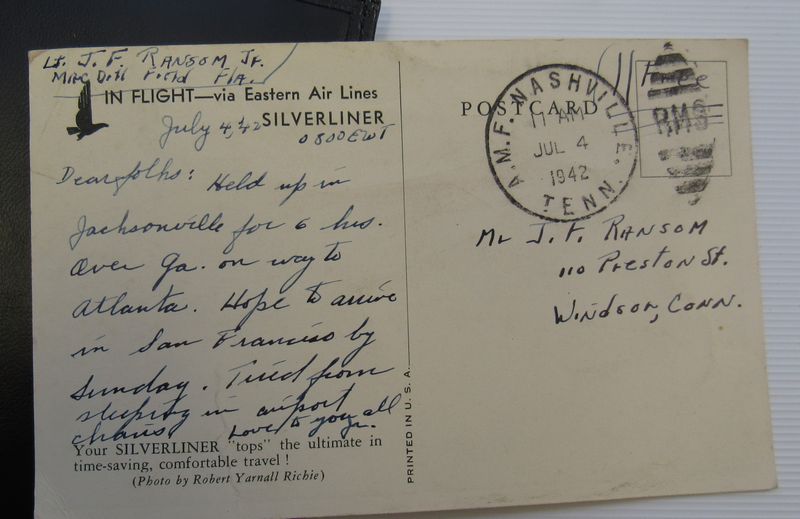 Lt. J. F. RANSOM JR.
MacDill Field Fla.
IN FLIGHT—via Eastern Air Lines
SILVERLINER
July 4, 42
0800 EWT
Dear folks: Held up in
Jacksonville for 6 hrs.
Over Ga. on way to
Atlanta. Hope to arrive
in San Francisco by
Sunday. Tired from
sleeping in airport
chairs. Love to you all
Jr.
Your SILVERLINER "tops" the ultimate in
time-saving, comfortable travel!
(Photo by Robert Yarnall Richie)
PRINTED IN U. S. A.
POSTCARD
Free
A.M.F. NASHVILLE,
11 AM
JUL 4
1942
TENN.
RMS
Mr J. F. RANSOM
110 Preston St.
Windsor, Conn.